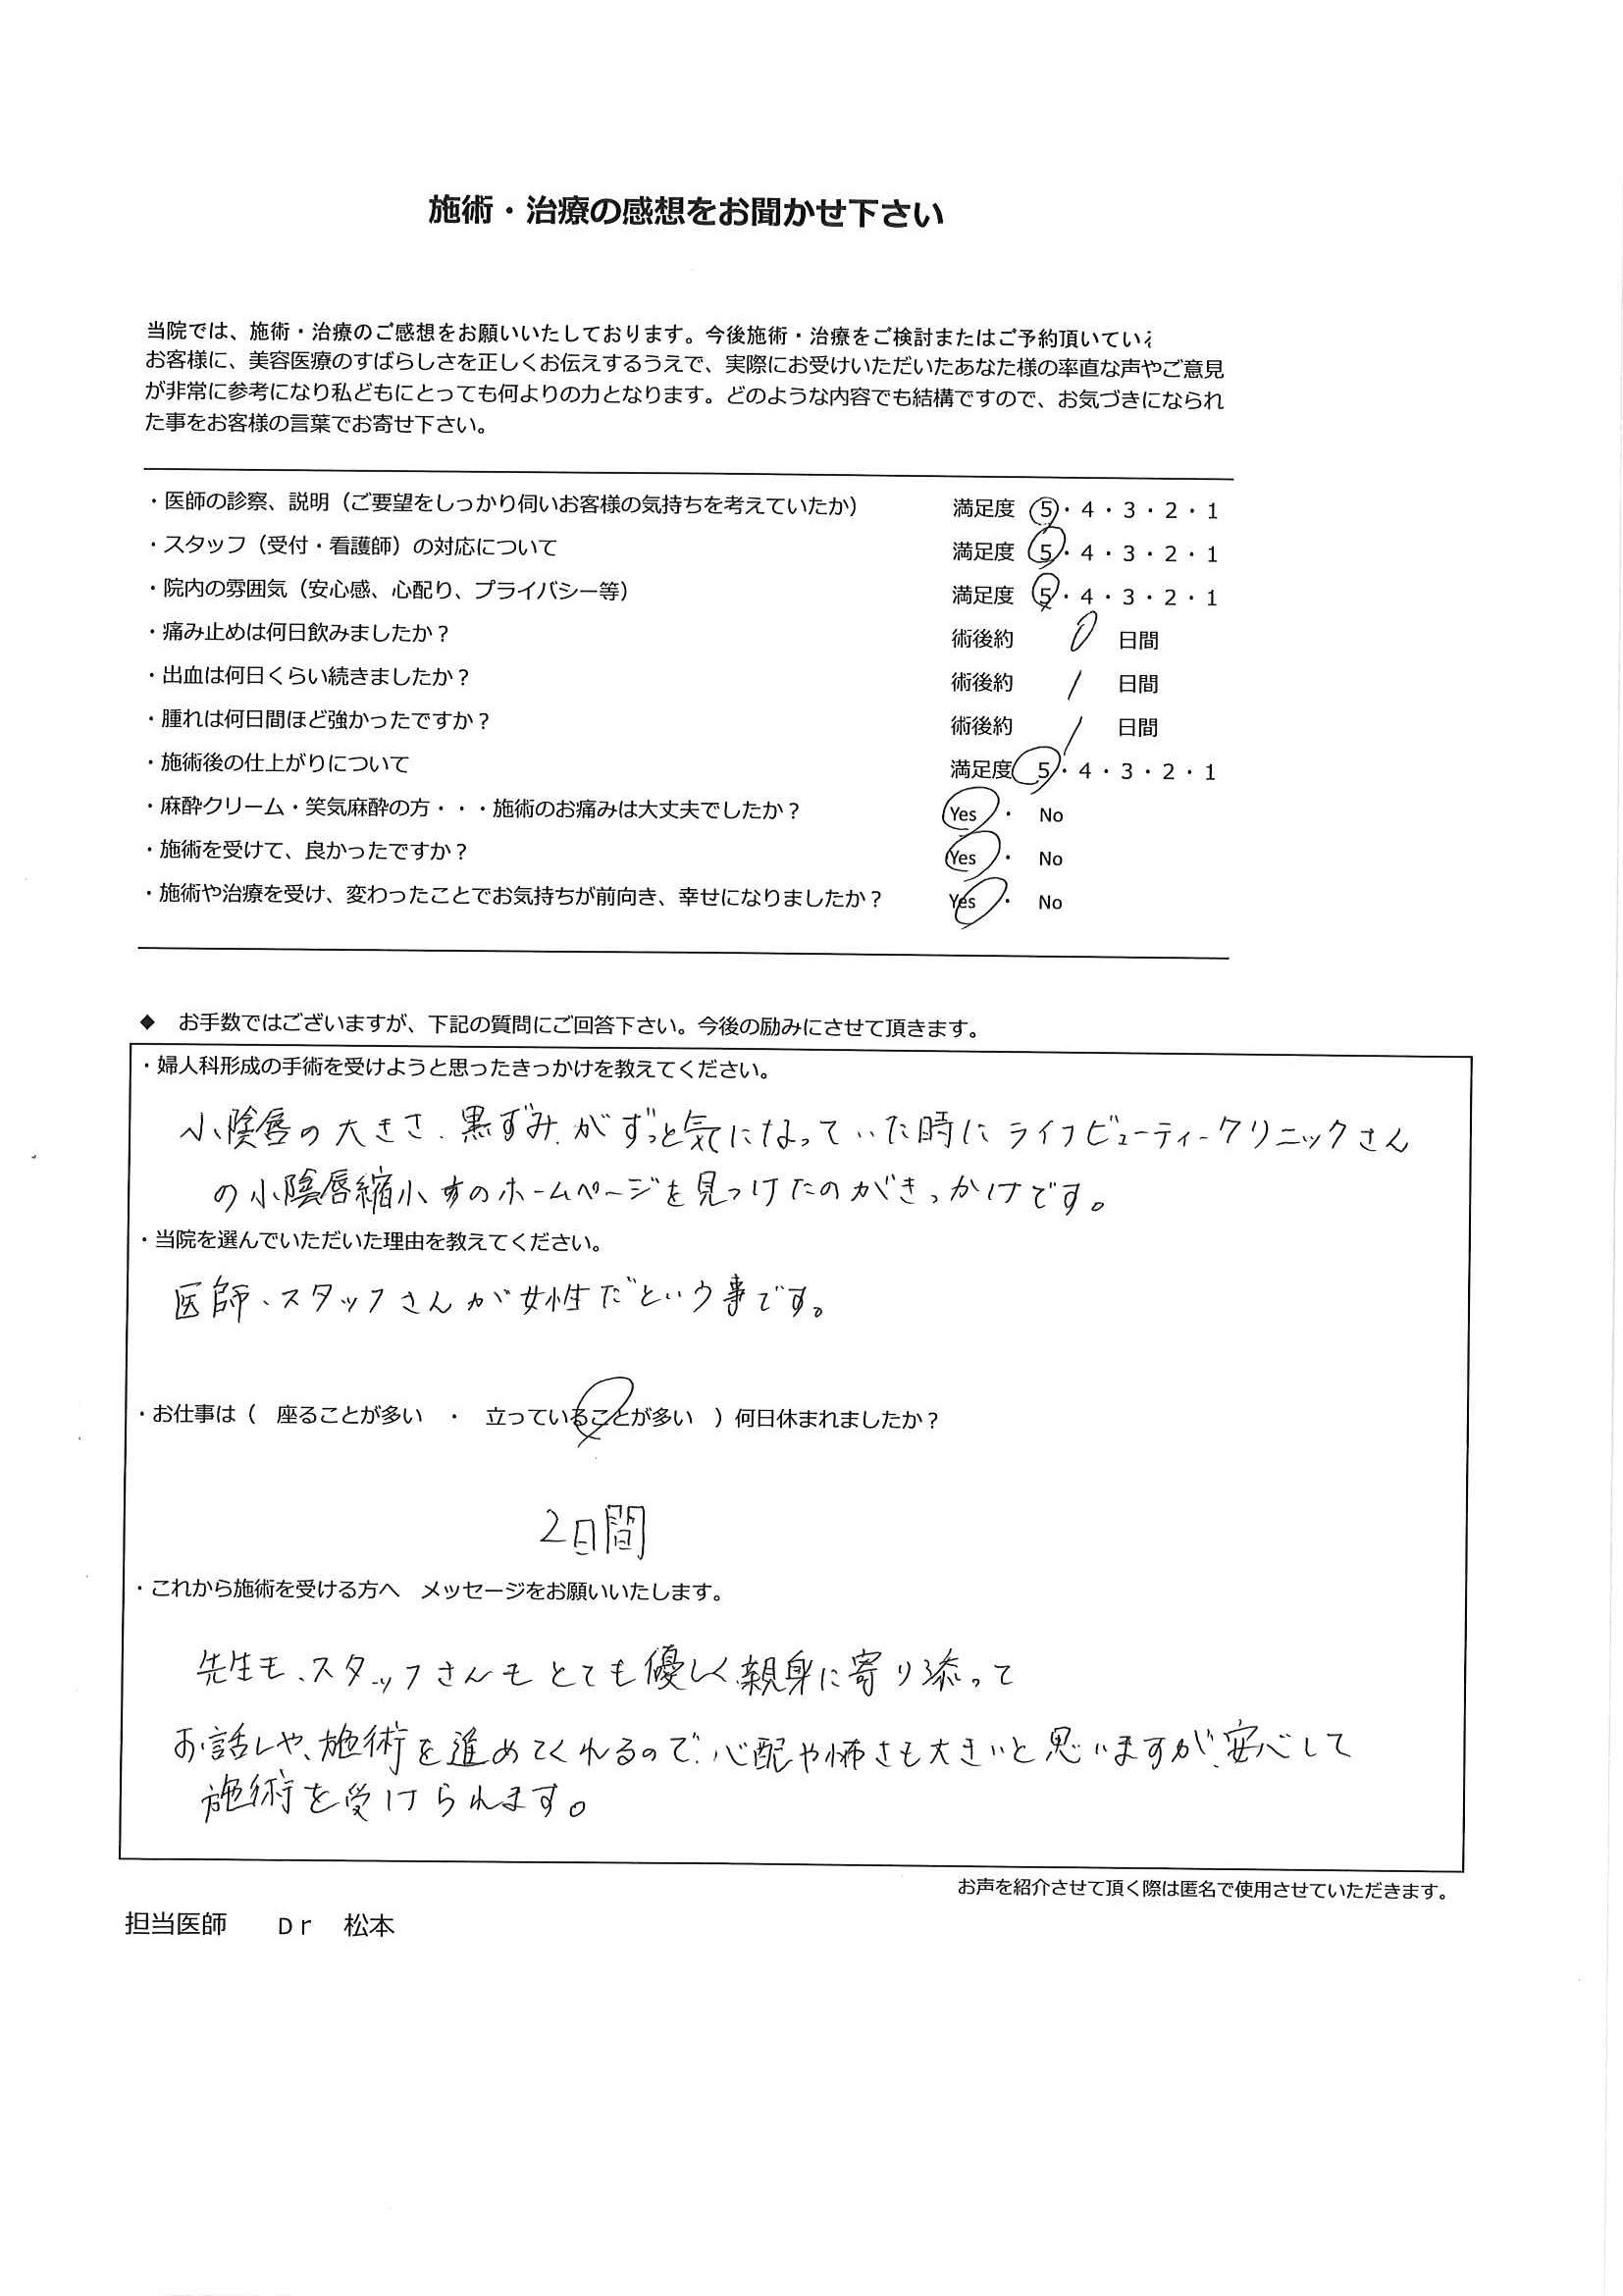 施術・治療の感想をお聞かせ下さい
当院では、施術・治療のご感想をお願いいたしております。今後施術・治療をご検討またはご予約頂いてい
お客様に、美容医療のすばらしさを正しくお伝えするうえで、実際にお受けいただいたあなた様の率直な声やご意見
が非常に参考になり私どもにとっても何よりの力となります。どのような内容でも結構ですので、お気づきになられ
た事をお客様の言葉でお寄せ下さい。
・医師の診察、説明（ご要望をしっかり伺いお客様の気持ちを考えていたか） 満足度 5・4・3・2・1
・スタッフ（受付・看護師）の対応について 満足度 5・4・3・2・1
・院内の雰囲気（安心感、心配り、プライバシー等） 満足度 5・4・3・2・1
・痛み止めは何日飲みましたか？ 術後約 0 日間
・出血は何日くらい続きましたか？ 術後約 / 日間
・腫れは何日間ほど強かったですか？ 術後約 / 日間
・施術後の仕上がりについて 満足度 5・4・3・2・1
・麻酔クリーム・笑気麻酔の方・・・施術のお痛みは大丈夫でしたか？ Yes ・ No
・施術を受けて、良かったですか？ Yes ・ No
・施術や治療を受け、変わったことでお気持ちが前向き、幸せになりましたか？ Yes ・ No
◆ お手数ではございますが、下記の質問にご回答下さい。今後の励みにさせて頂きます。
・婦人科形成の手術を受けようと思ったきっかけを教えてください。
小陰唇の大きさ、黒ずみ、がずっと気になっていた時にライフビューティークリニックさん
の小陰唇縮小のホームページを見つけたのがきっかけです。
・当院を選んでいただいた理由を教えてください。
医師、スタッフさんが女性だという事です。
・お仕事は（ 座ることが多い ・ 立っていることが多い ）何日休まれましたか？
2日間
・これから施術を受ける方へ メッセージをお願いいたします。
先生も、スタッフさんもとても優しく、親身に寄り添って
お話しや、施術を進めてくれるので、心配や怖さも大きいと思いますが、安心して
施術を受けられます。
お声を紹介させて頂く際は匿名で使用させていただきます。
担当医師 Dr 松本